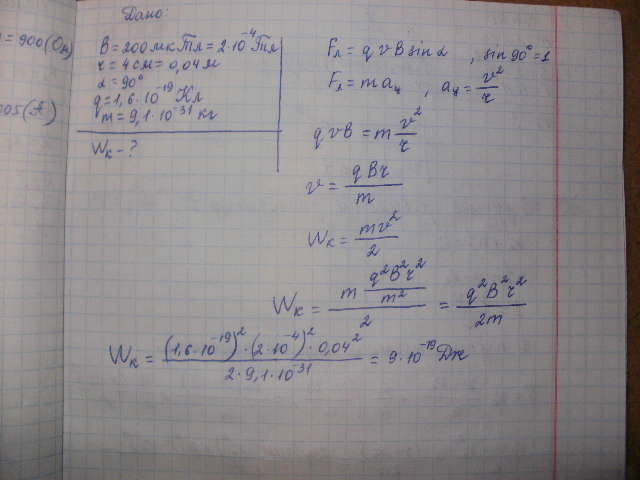 = 900(Ом)
05(А)
Дано:
B = 200 мкТл = 2·10⁻⁴Тл
r = 4 см = 0,04 м
α = 90°
q = 1,6·10⁻¹⁹ Кл
m = 9,1·10⁻³¹ кг
Wк - ?
Fл = q v B sin α , sin 90° = 1
Fл = m aц , aц = v²/r
q v B = m v²/r
v = qBr/m
Wк = mv²/2
Wк = (m q²B²r²/m²)/2 = q²B²r²/2m
Wк = (1,6·10⁻¹⁹)²·(2·10⁻⁴)²·0,04²/2·9,1·10⁻³¹ = 9·10⁻¹⁹ Дж